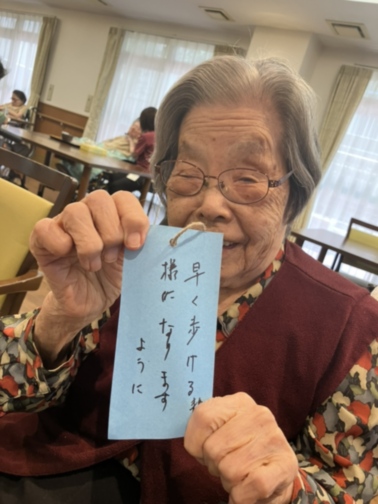 早く歩ける
様になります
ように